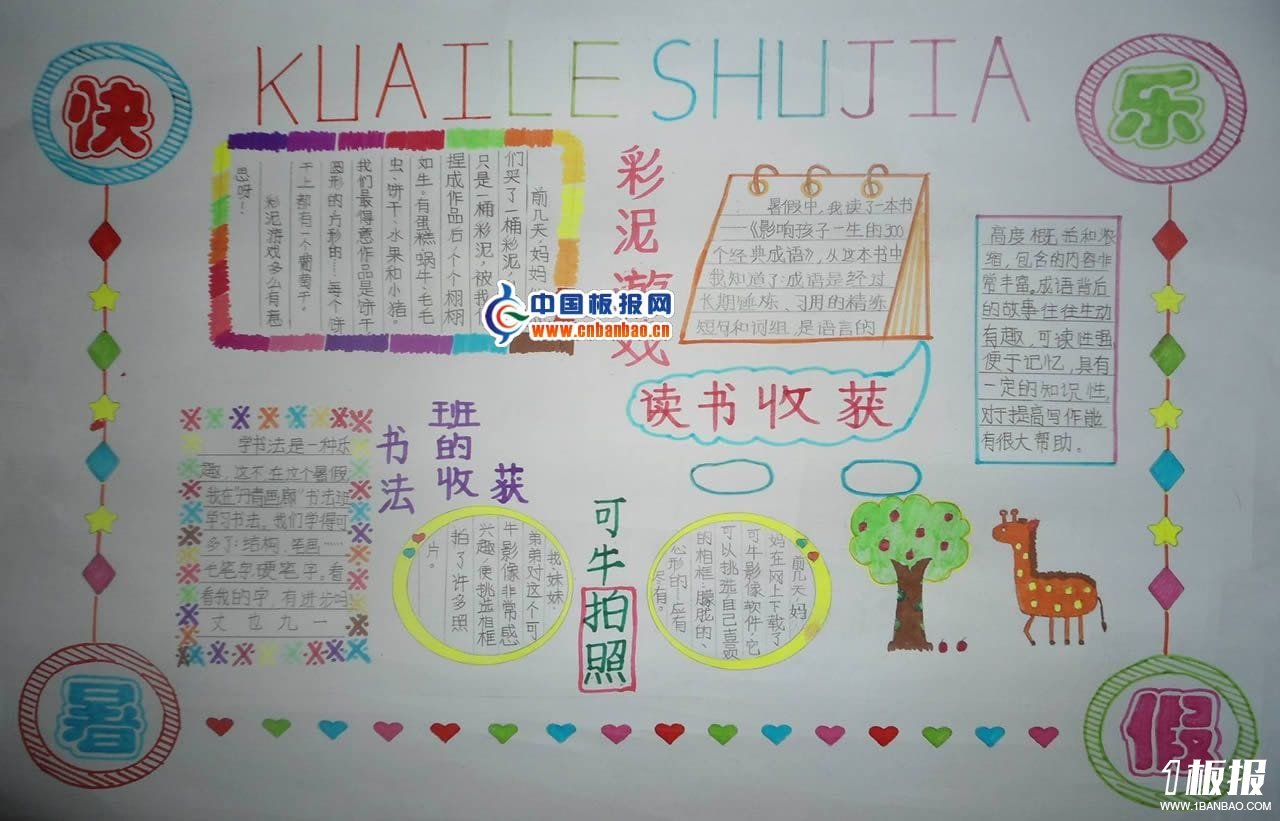 KUAILE SHUJIA
快
乐
暑
假
彩泥游戏
前几天,妈妈
们买了一桶彩泥,
只是一桶彩泥,被我
捏成作品后,个个栩栩
如生。有蛋糕、蜗牛、毛毛
虫、饼干、水果和小猪。
我们最得意作品是饼干
圆形的、方形的……每个饼
干上都有一个葡萄干。
彩泥游戏多么有意
思呀!
中国板报网
www.cnbanbao.cn
暑假中,我读了一本书
——《影响孩子一生的300
个经典成语》,从这本书中
我知道了:成语是经过
长期锤炼、习用的精练
短句和词组,是语言的
读书收获
高度概括和浓
缩,包含的内容非
常丰富。成语背后
的故事往往生动
有趣,可读性强,
便于记忆,具有
一定的知识性,
对于提高写作能
有很大帮助。
书法
班的收获
学书法是一种乐
趣,这不在这个暑假,
我在“丹青画廊”书法班
学习书法。我们学得可
多了:结构、笔画……
毛笔字,硬笔字。看
看我的字,有进步吗
丈 也 九 一
可牛拍照
前几天,妈
妈在网上下载了
可牛影像软件,它
可以挑选自己喜欢
的相框,朦胧的、
心形的……应有
尽有。
我、妹妹、
弟弟对这个可
牛影像非常感
兴趣,便挑选相框
拍了许多照
片。
1板报
WWW.1BANBAO.COM